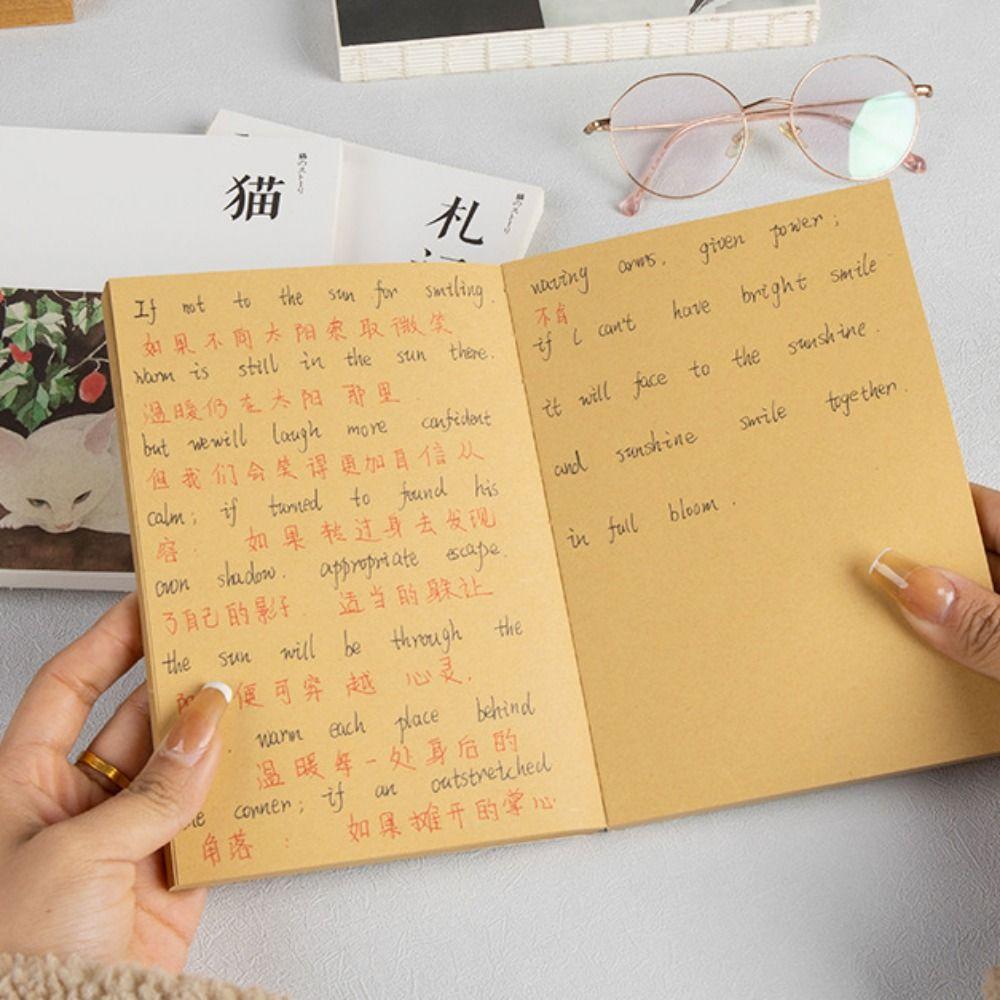 猫
猫のストーリ
札
猫のストーリ
If not to the sun for smiling.
如果不向太阳索取微笑
warm is still in the sun there.
温暖仍在太阳那里
but wewill laugh more confident
但我们会笑得更加自信从
calm; if turned to found his
容; 如果转过身去发现
own shadow. appropriate escape.
了自己的影子 适当的躲让
the sun will be through the
便可穿越心灵.
warm each place behind
温暖每一处身后的
corner; if an outstretched
角落: 如果摊开的掌心
waving arms. given power;
不肯
if i can't have bright smile
it will face to the sunshine.
and sunshine smile together.
in full bloom.